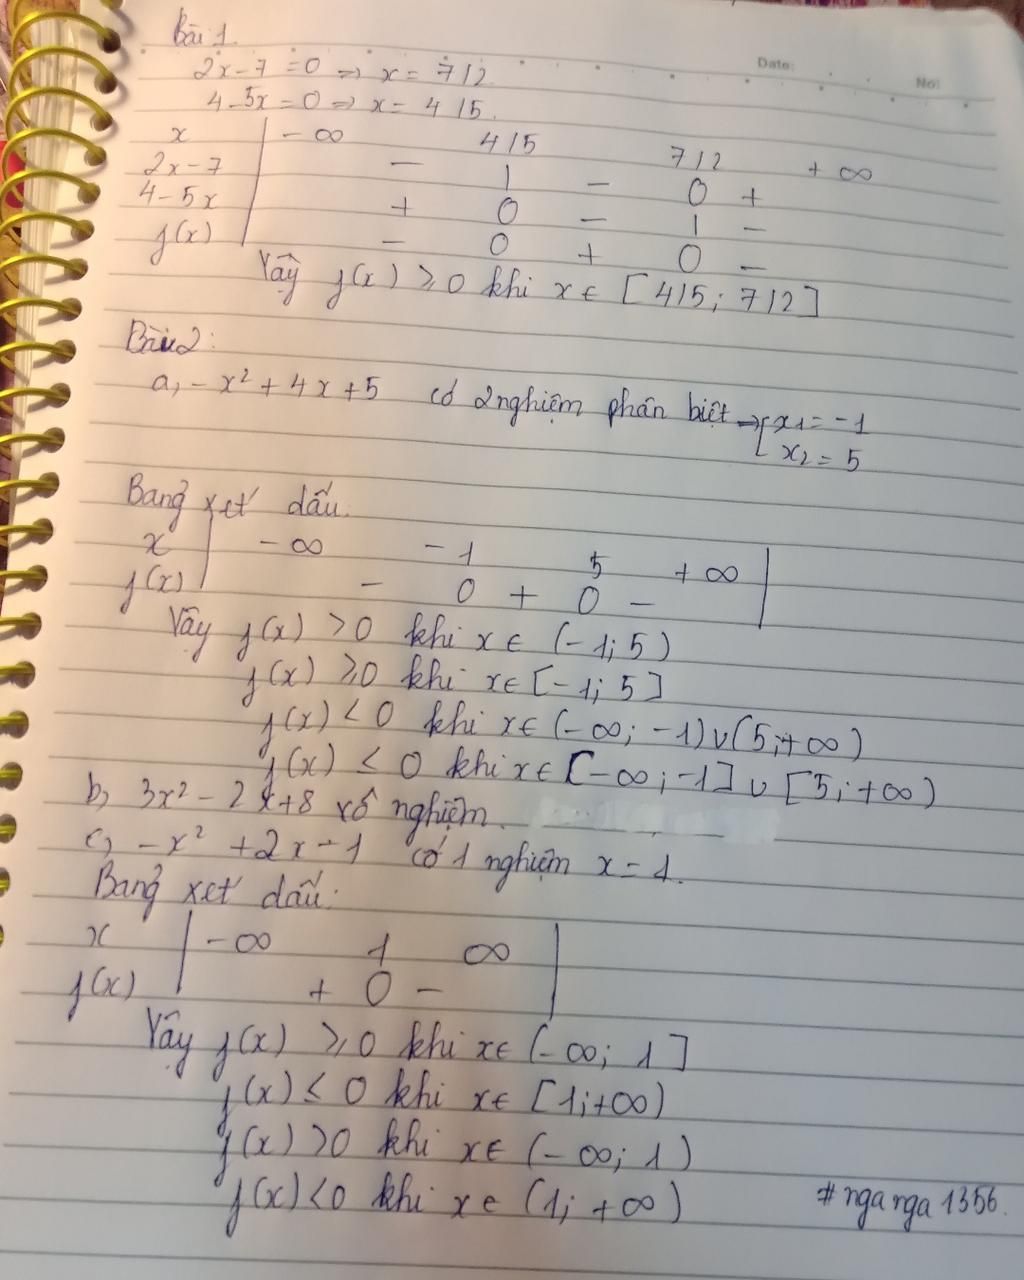 Bài 1.
Date:
No:
2x-7 =0 => x = 7/2
4-5x = 0 => x = 4/5.
x | -∞ 4/5 7/2 +∞
2x-7 | - | - 0 +
4-5x | + 0 - | -
f(x) | - 0 + 0 -
Vậy f(x) ≥ 0 khi x ∈ [4/5; 7/2]
Bài 2:
a, -x² + 4x + 5 có 2 nghiệm phân biệt => [ x1 = -1
x2 = 5
Bảng xét dấu.
x | -∞ -1 5 +∞ |
f(x) | - 0 + 0 - |
Vậy f(x) > 0 khi x ∈ (-1; 5)
f(x) ≥ 0 khi x ∈ [-1; 5]
f(x) < 0 khi x ∈ (-∞; -1) ∪ (5; +∞)
f(x) ≤ 0 khi x ∈ [-∞; -1] ∪ [5; +∞)
b, 3x² - 2x + 8 vô nghiệm.
c, -x² + 2x - 1 có 1 nghiệm x = 1.
Bảng xét dấu:
x | -∞ 1 ∞ |
f(x) | + 0 - |
Vậy f(x) ≥ 0 khi x ∈ (-∞; 1]
f(x) ≤ 0 khi x ∈ [1; +∞)
f(x) > 0 khi x ∈ (-∞; 1)
f(x) < 0 khi x ∈ (1; +∞)
#nganga1356.